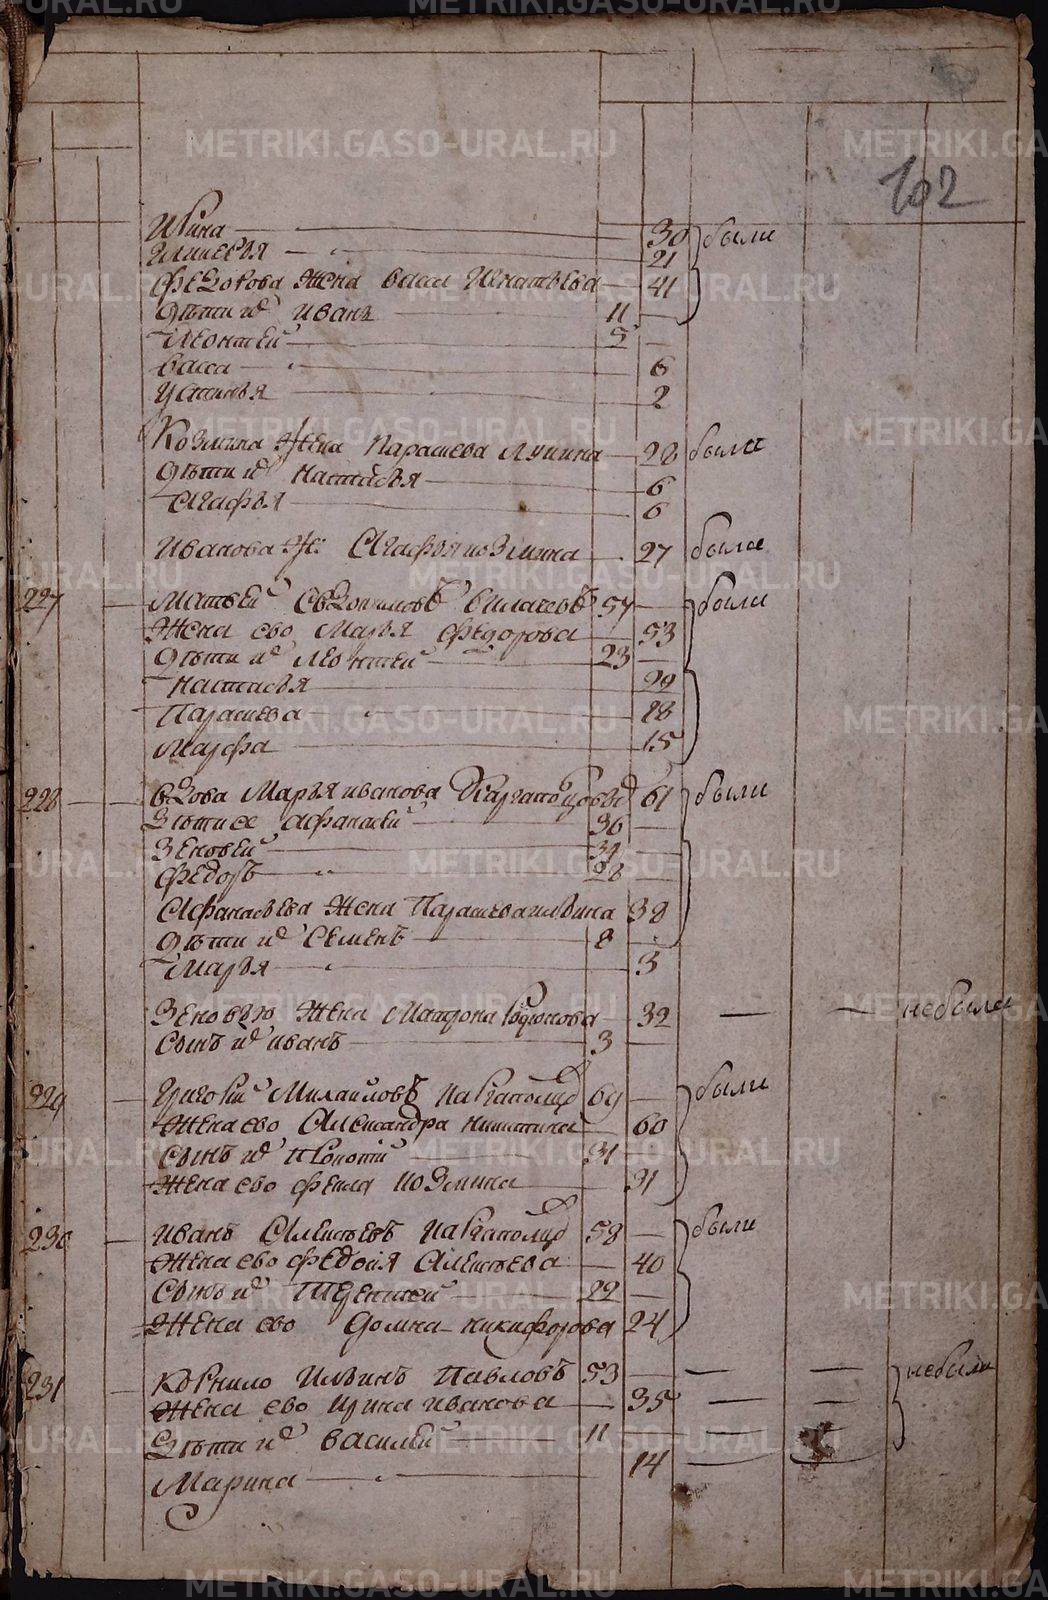 102
Ирина 30 были
Гликерья 21
Федорова жена Васса Игнатьева 41
Дѣти их Иванъ 11
Леонтей 5
Васса 6
Устинья 2
Козмина жена Параскева Лукина 28 были
Дѣти их Настасья 6
Агафья 6
Иванова ж: Агафья Козмина 27 была
227 Матвей Евдокимовъ 57 были
Жена ево Марья Федорова 53
Дѣти их Леонтей 23
Настасья 29
Параскева 18
Марфа 15
228 Вдова Марья Иванова 61 были
Дѣти ее Афанасей 36
Зеновей 34
Федоръ 28
Афанасьева жена Параскева 38
Дѣти их Семенъ 8
Марья 3
Зеновью жена Матрона Родионова 32 — — небыли
Сынъ их Иванъ 3
229 Григорий Михайловъ 69 были
Жена ево Александра Никитина 60
Сынъ их Прокопий 31
Жена ево Фекла Козмина 31
230 Иванъ Алексѣевъ 58 были
Жена ево Федосия Алексѣева 40
Сынъ их Терентей 22
Жена ево Домна Никифорова 24
231 Корнило Ильинъ Павловъ 53 — — небыли
Жена ево Ирина Иванова 35 — —
Дѣти их Василей 11 — —
Марина 14 —
METRIKI.GASO-URAL.RU